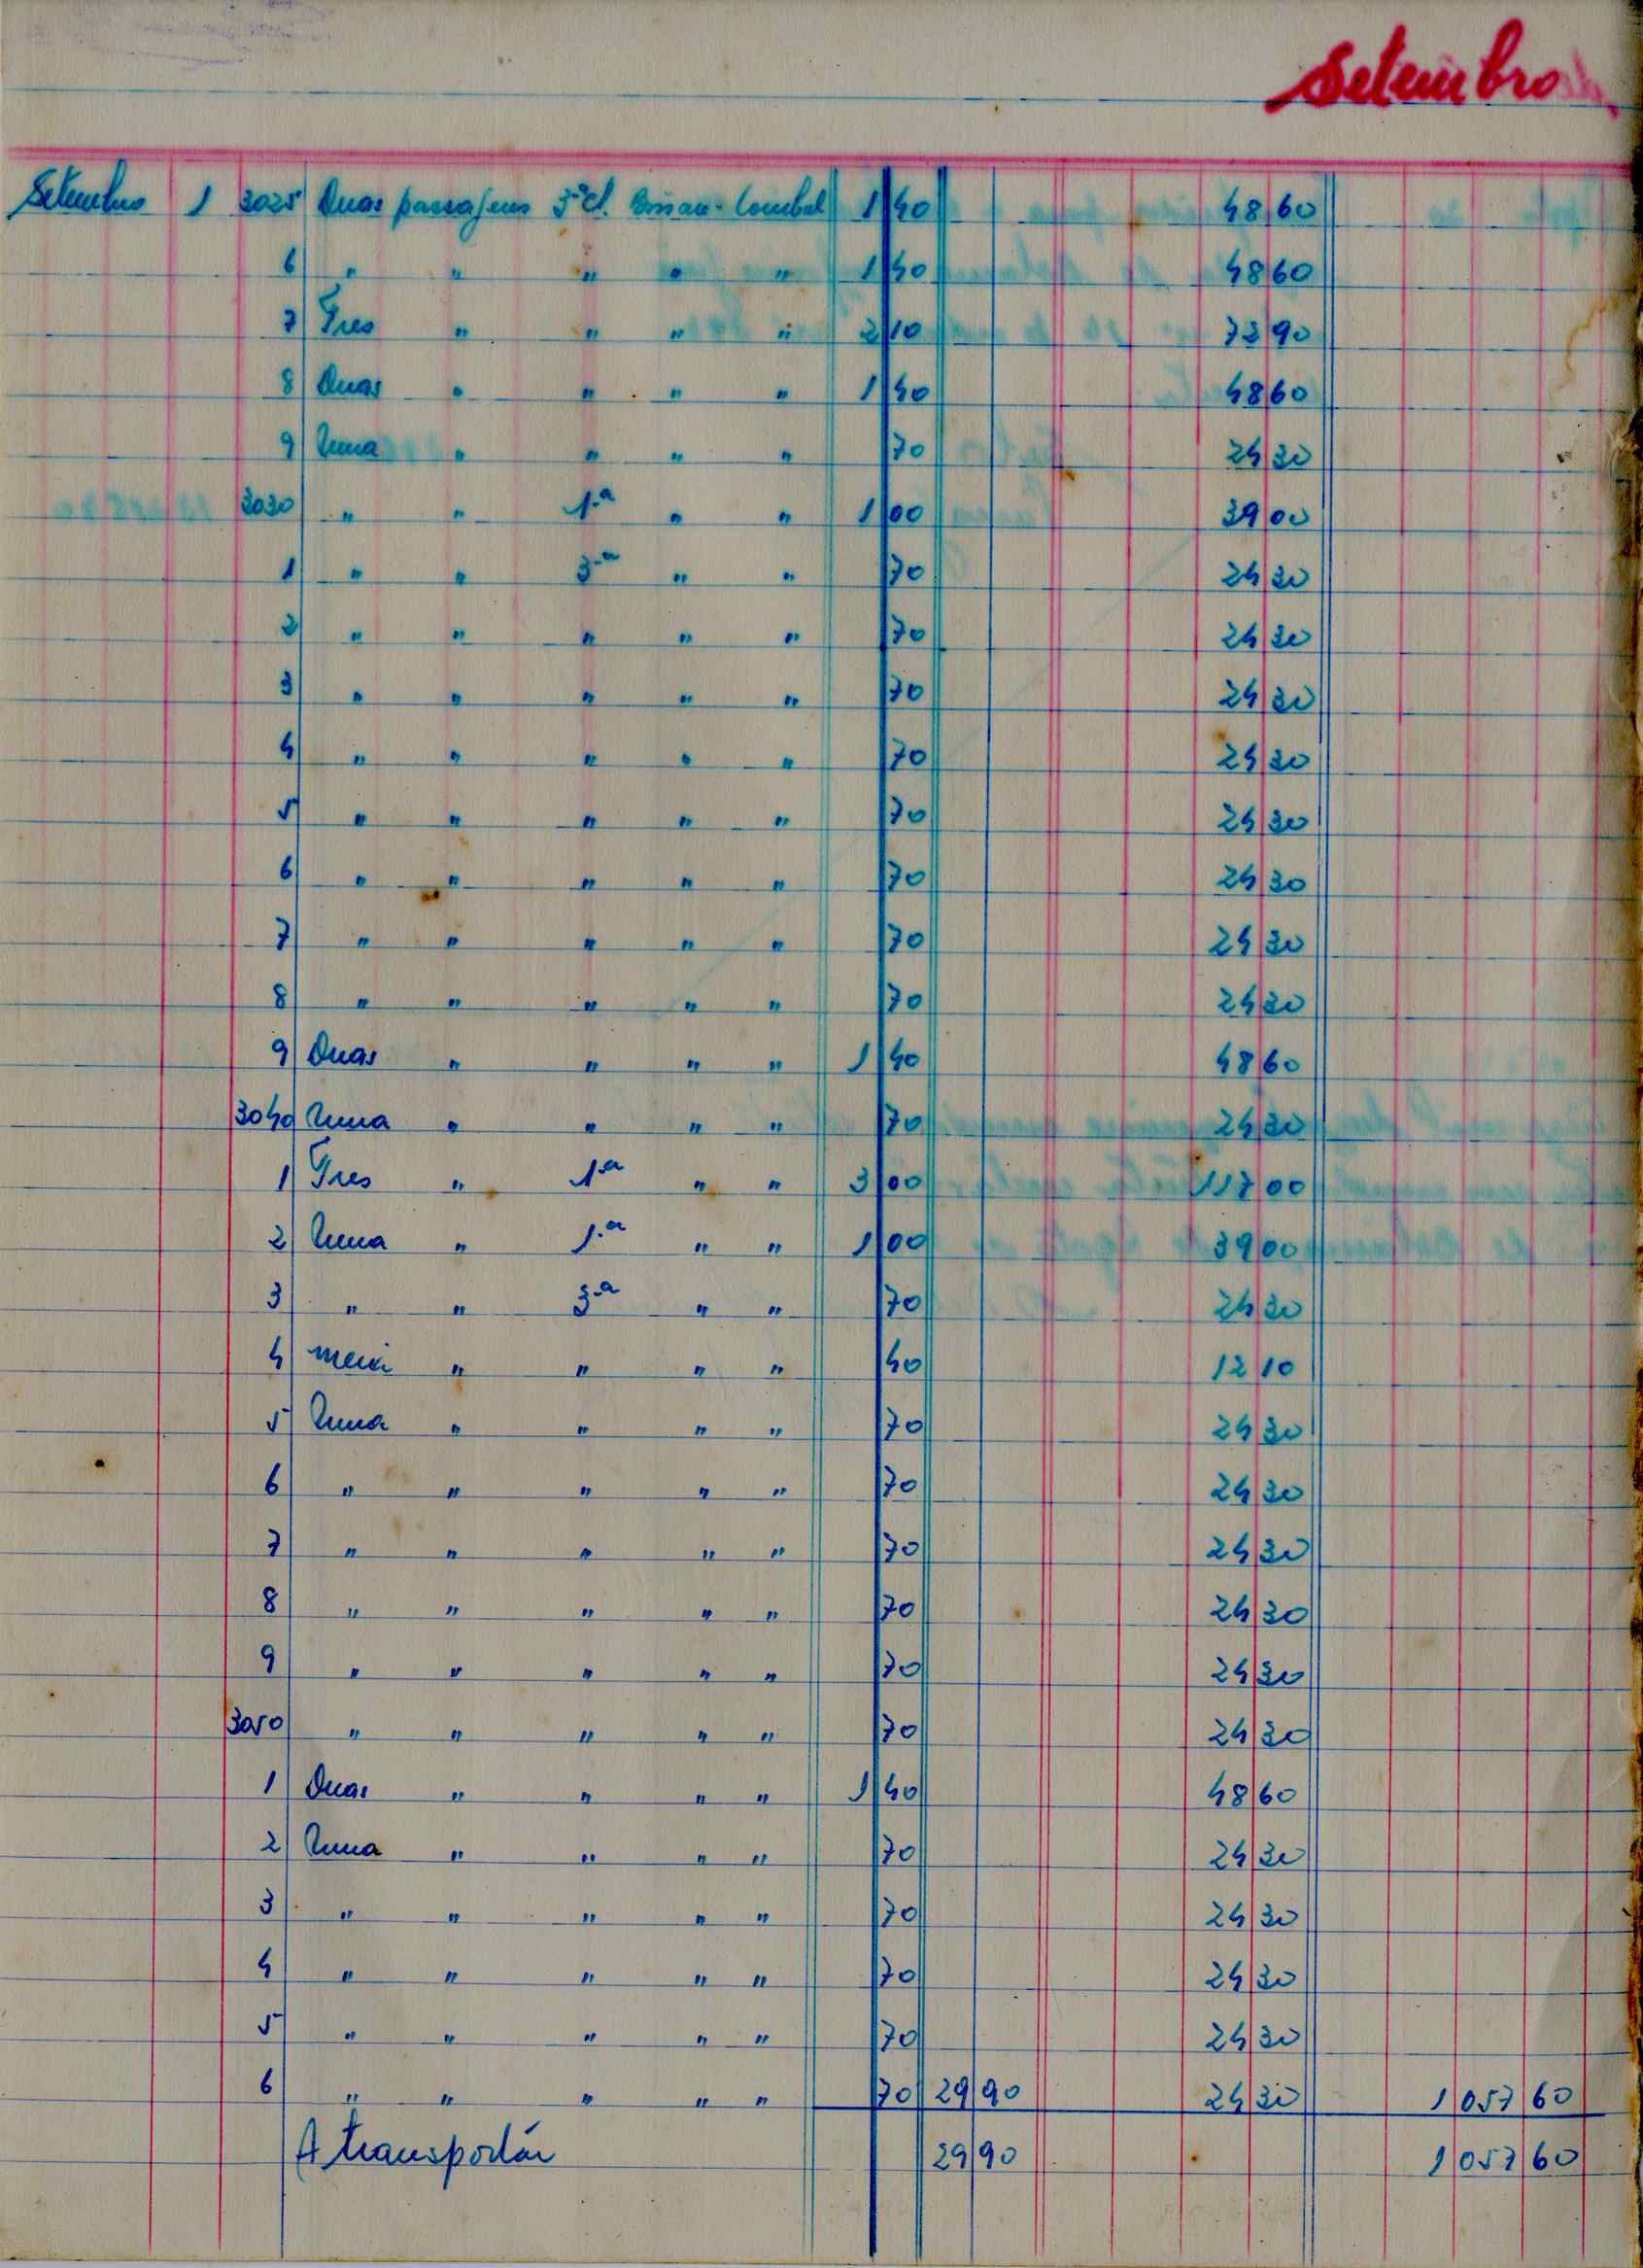 Setembro
Setembro 1 3025 Duas passajens 3ª cl. Bissau-Combal 1 40 48 60
6 " " " " " 1 40 48 60
7 Tres " " " " 2 10 72 90
8 Duas " " " " 1 40 48 60
9 Uma " " " " 70 24 30
3030 " " 1.ª " " 1 00 39 00
1 " " 3.ª " " 70 24 30
2 " " " " " 70 24 30
3 " " " " " 70 24 30
4 " " " " " 70 24 30
5 " " " " " 70 24 30
6 " " " " " 70 24 30
7 " " " " " 70 24 30
8 " " " " " 70 24 30
9 Duas " " " " 1 40 48 60
3040 Uma " " " " 70 24 30
1 Tres " 1ª " " 3 00 117 00
2 Uma " 1.ª " " 1 00 39 00
3 " " 3.ª " " 70 24 30
4 meia " " " " 40 12 10
5 Uma " " " " 70 24 30
6 " " " " " 70 24 30
7 " " " " " 70 24 30
8 " " " " " 70 24 30
9 " " " " " 70 24 30
3050 " " " " " 70 24 30
1 Duas " " " " 1 40 48 60
2 Uma " " " " 70 24 30
3 " " " " " 70 24 30
4 " " " " " 70 24 30
5 " " " " " 70 24 30
6 " " " " " 70 29 90 24 30 1 057 60
A transportár 29 90 1 057 60